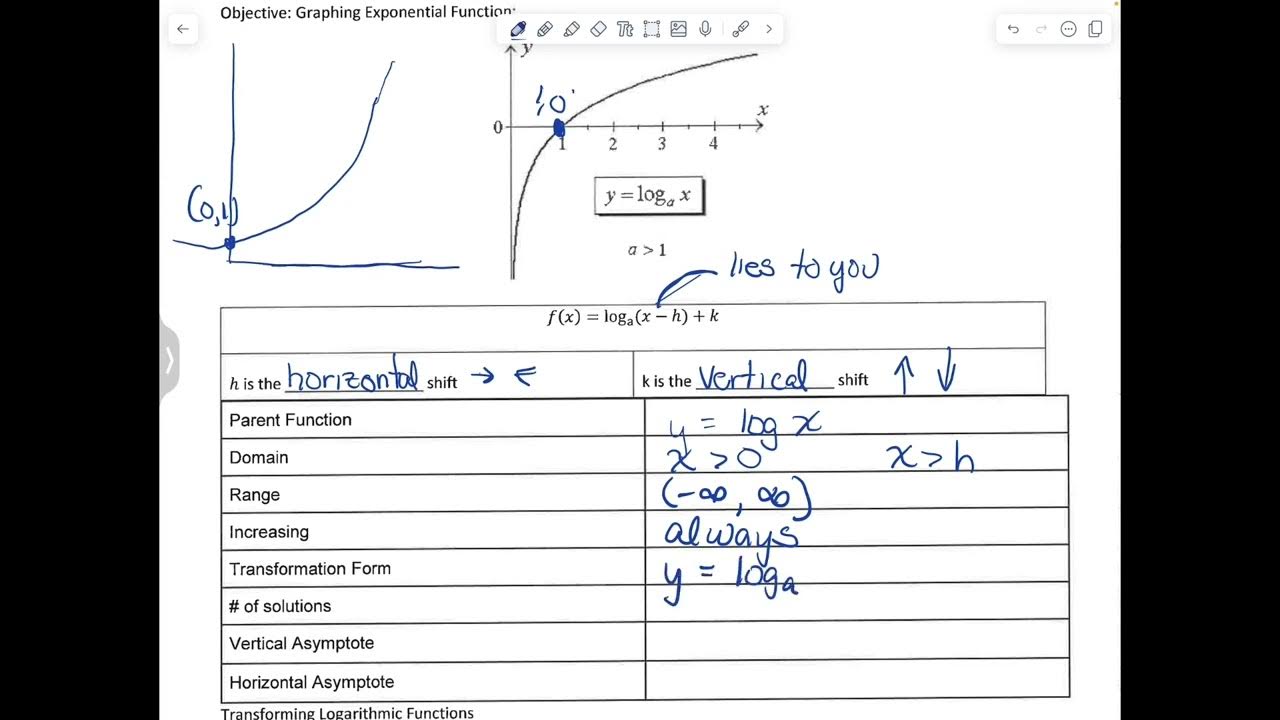 Objective: Graphing Exponential Function
y
1,0
x
0
1 2 3 4
(0,1)
y = logₐ x
a > 1
lies to you
f(x) = logₐ(x − h) + k
h is the horizontal shift → ←
k is the vertical shift ↑ ↓
Parent Function y = log x
Domain x > 0 x > h
Range (-∞, ∞)
Increasing always
Transformation Form y = logₐ
# of solutions
Vertical Asymptote
Horizontal Asymptote
Transforming Logarithmic Functions